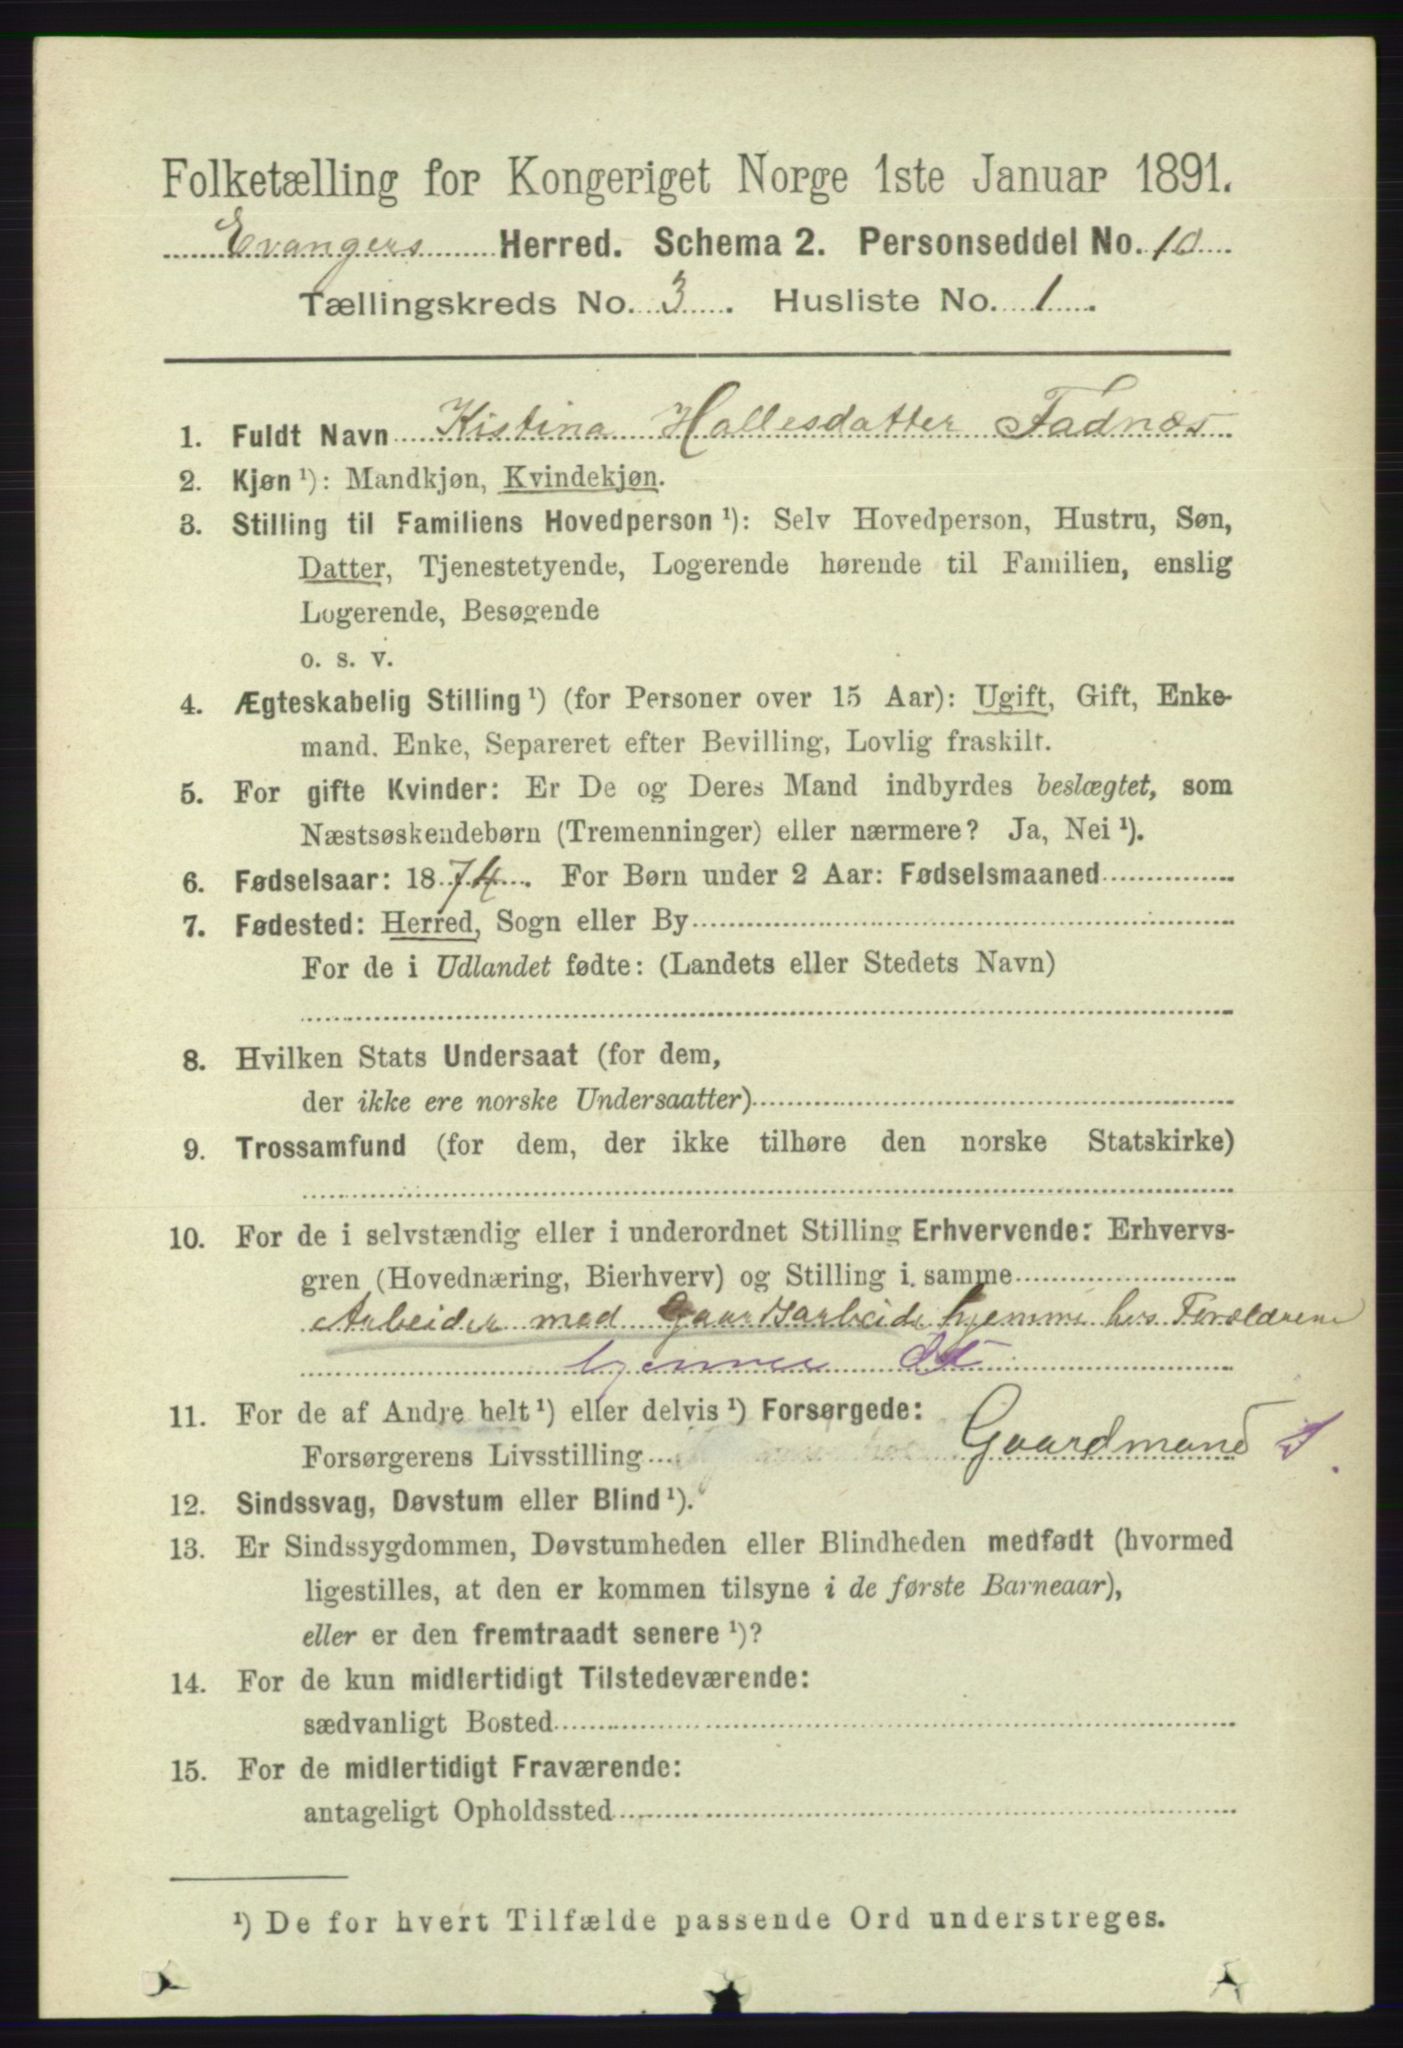 Folketælling for Kongeriget Norge 1ste Januar 1891.
Evangers Herred. Schema 2. Personseddel No. 10
Tællingskreds No. 3. Husliste No. 1.
1. Fuldt Navn Kistina Hallesdatter Fadnæs
2. Kjøn ¹): Mandkjøn, Kvindekjøn.
3. Stilling til Familiens Hovedperson ¹): Selv Hovedperson, Hustru, Søn,
Datter, Tjenestetyende, Logerende hørende til Familien, enslig
Logerende, Besøgende
o. s. v.
4. Ægteskabelig Stilling ¹) (for Personer over 15 Aar): Ugift, Gift, Enke-
mand. Enke, Separeret efter Bevilling, Lovlig fraskilt.
5. For gifte Kvinder: Er De og Deres Mand indbyrdes beslægtet, som
Næstsøskendebørn (Tremenninger) eller nærmere? Ja, Nei ¹).
6. Fødselsaar: 1874. For Børn under 2 Aar: Fødselsmaaned
7. Fødested: Herred, Sogn eller By
For de i Udlandet fødte: (Landets eller Stedets Navn)
8. Hvilken Stats Undersaat (for dem,
der ikke ere norske Undersaatter)
9. Trossamfund (for dem, der ikke tilhøre den norske Statskirke)
10. For de i selvstændig eller i underordnet Stilling Erhvervende: Erhvervs-
gren (Hovednæring, Bierhverv) og Stilling i samme
Arbeider med Gaardsarbeide hjemme hos Forældrene
hjemme
11. For de af Andre helt ¹) eller delvis ¹) Forsørgede:
Forsørgerens Livsstilling Gaardmand
12. Sindssvag, Døvstum eller Blind ¹).
13. Er Sindssygdommen, Døvstumheden eller Blindheden medfødt (hvormed
ligestilles, at den er kommen tilsyne i de første Barneaar),
eller er den fremtraadt senere ¹)?
14. For de kun midlertidigt Tilstedeværende:
sædvanligt Bosted
15. For de midlertidigt Fraværende:
antageligt Opholdssted
¹) De for hvert Tilfælde passende Ord understreges.